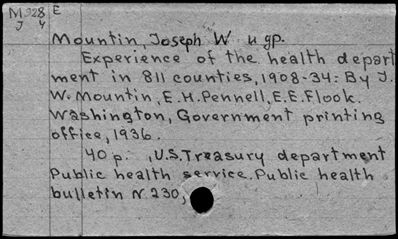 M 928 E
J 4
Mountin, Joseph W. u gp.
Experience of the health depart
ment in 811 counties, 1908-34: By J.
W. Mountin, E.H. Pennell, E.E. Flook.
Washington, Government printing
office, 1936.
40 p. , U.S. Treasury department
Public health service. Public health
bulletin N 230,